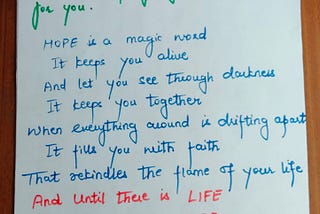 for you.
HOPE is a magic word
It keeps you alive
And let you see through darkness
It keeps you together
When everything around is drifting apart
It fills you with faith
That rekindles the flame of your life
And Until there is LIFE